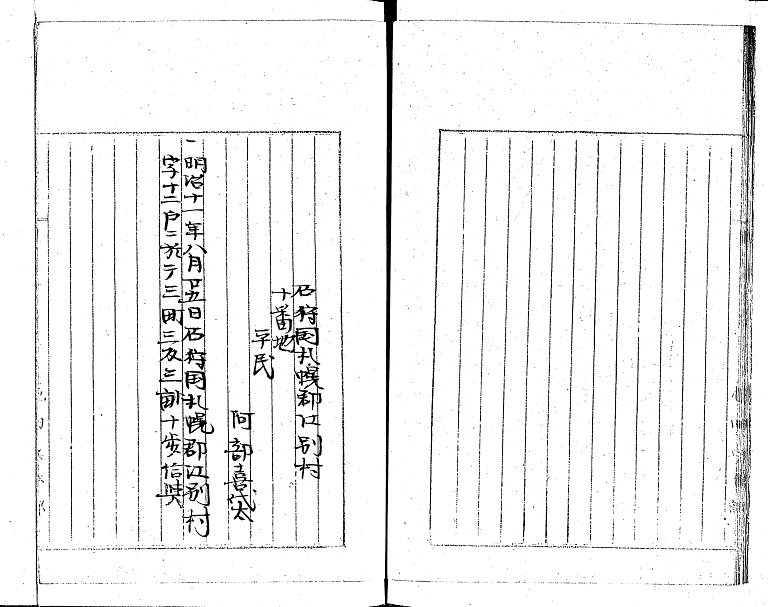 石狩国札幌郡江別村
十番地
平民
阿部喜
一明治十一年八月廿五日石狩国札幌郡江別村
字十二戸ニ於テ三町三反三畝十歩